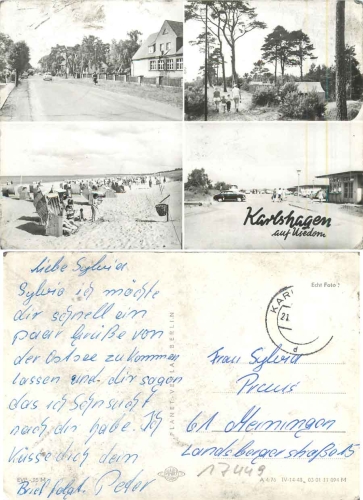 Karlshagen
auf Usedom
Liebe Sylvia
Echt Foto
Sylvia ich möchte
dir schnell ein
paar Grüße von
der Ostsee zukommen
lassen und dir sagen
das ich Sehnsucht
nach dir habe. Ich
Küsse dich dein
Brief folgt. Peter
PLANET-VERLAG BERLIN
KARL
21
Frau Sylvia
61 Meiningen
Landsbergerstraße 15
17449